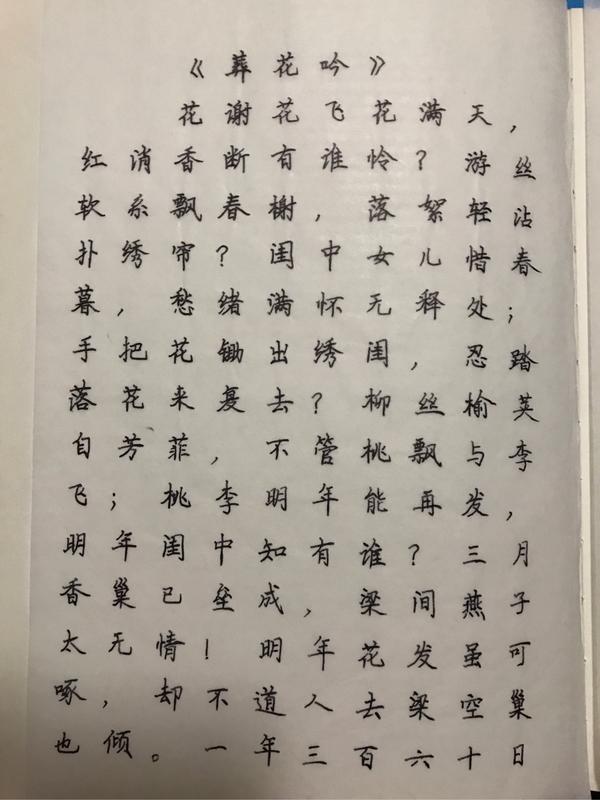 《葬花吟》
花谢花飞花满天，
红消香断有谁怜？游丝
软系飘春榭，落絮轻沾
扑绣帘？闺中女儿惜春
暮，愁绪满怀无释处；
手把花锄出绣闺，忍踏
落花来复去？柳丝榆荚
自芳菲，不管桃飘与李
飞；桃李明年能再发，
明年闺中知有谁？三月
香巢已垒成，梁间燕子
太无情！明年花发虽可
啄，却不道人去梁空巢
也倾。一年三百六十日